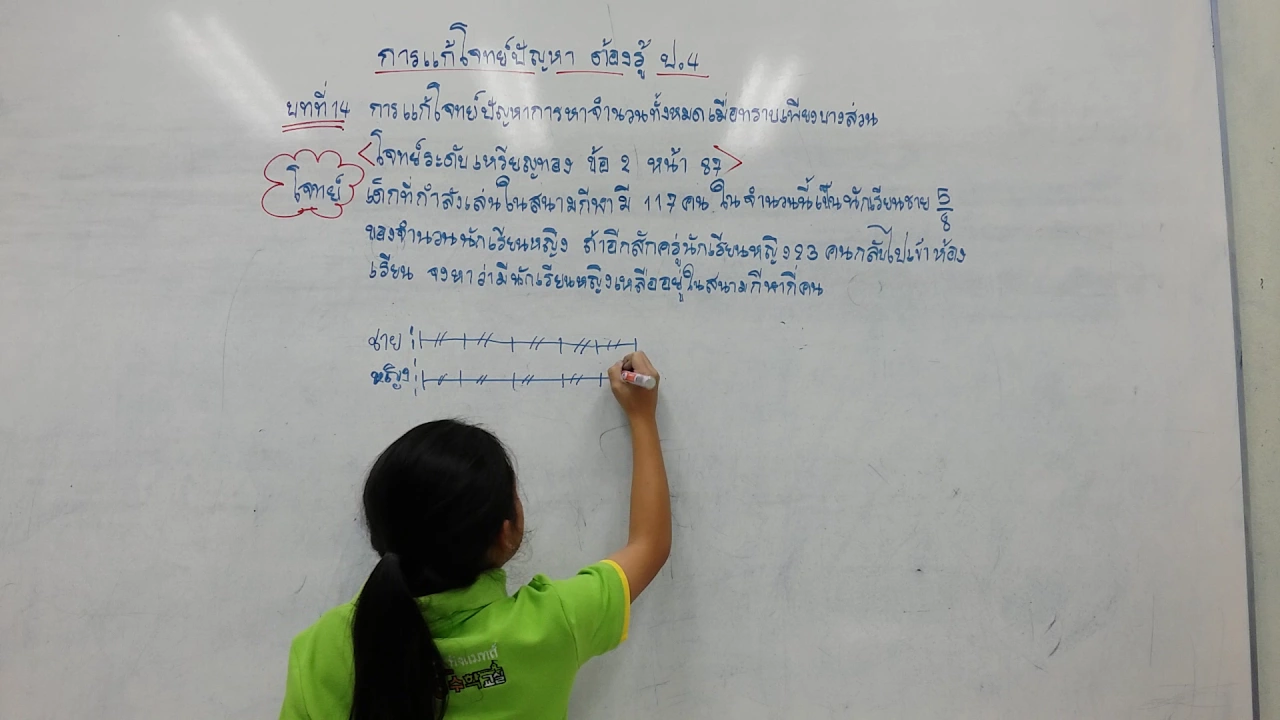 การแก้โจทย์ปัญหา ต้องรู้ ป.4
บทที่ 14 การแก้โจทย์ปัญหาการหาจำนวนทั้งหมดเมื่อทราบเพียงบางส่วน
<โจทย์ระดับเหรียญทอง ข้อ 2 หน้า 87>
โจทย์ เด็กที่กำลังเล่นในสนามกีฬามี 117 คน ในจำนวนนี้เป็นนักเรียนชาย 5/8
ของจำนวนนักเรียนหญิง ถ้าอีกสักครู่นักเรียนหญิง 23 คนกลับไปเข้าห้อง
เรียน จงหาว่ามีนักเรียนหญิงเหลืออยู่ในสนามกีฬากี่คน
ชาย :
หญิง :